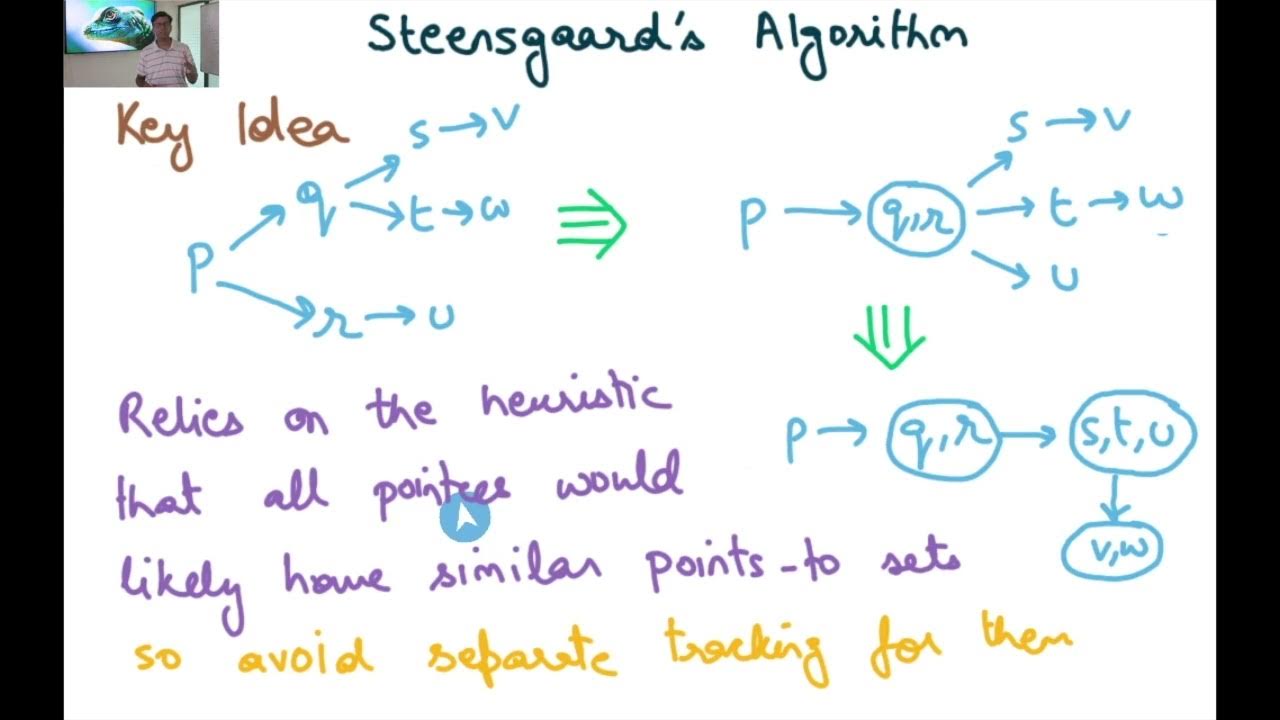 Steensgaard's Algorithm
Key Idea
s → v
q → t → w
p
r → u
s → v
p → q,r → t → w
u
p → q,r → s,t,u
v,w
Relies on the heuristic
that all pointees would
likely have similar points-to sets
so avoid separate tracking for them